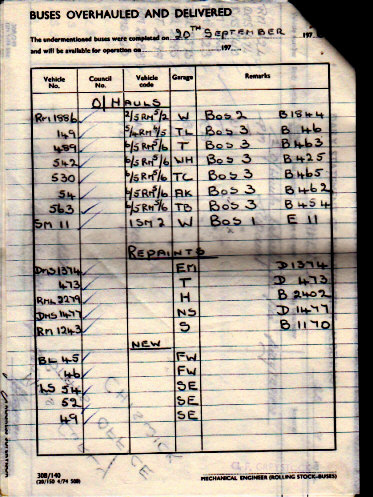 BUSES OVERHAULED AND DELIVERED
The undermentioned buses were completed on 20TH SEPTEMBER 197
and will be available for operation on 197
Vehicle No. Council No. Vehicle code Garage Remarks
O/HAULS
RM1886 2/5RM5/2 W BOS 2 B1844
149 5/4RM5/5 TL BOS 3 B 46
489 6/5RM5/6 T BOS 3 B463
542 6/5RM5/6 WH BOS 3 B425
530 6/5RM5/6 TC BOS 3 B465
54 6/5RM5/6 AK BOS 3 B462
563 6/5RM5/6 TB BOS 3 B454
SM 11 1SM2 W BOS 1 E 11
REPAINTS
DMS1374 EM D1374
473 T D 473
RML2279 H B2402
DMS1477 NS D1477
RM1243 S B1170
NEW
BL 45 FW
46 FW
LS 54 SE
52 SE
49 SE
CHISWICK
OFFICE
308/140
(20/150 4/74 50B)
MECHANICAL ENGINEER (ROLLING STOCK-BUSES)